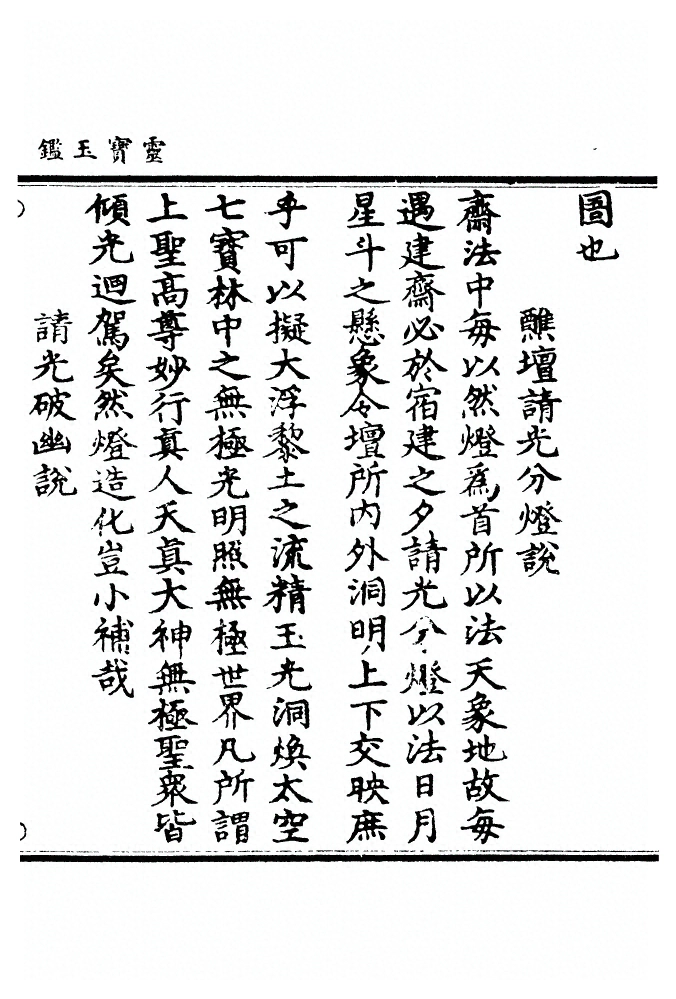 靈寶玉鑑
圖也
醮壇請光分燈說
齋法中每以然燈爲首所以法天象地故每
遇建齋必於宿建之夕請光分燈以法日月
星斗之懸象令壇所內外洞明上下交映庶
乎可以擬大浮黎土之流精玉光洞煥太空
七寶林中之無極光明照無極世界凡所謂
上聖高尊妙行真人天真大神無極聖眾皆
傾光迴駕矣然燈造化豈小補哉
請光破幽說